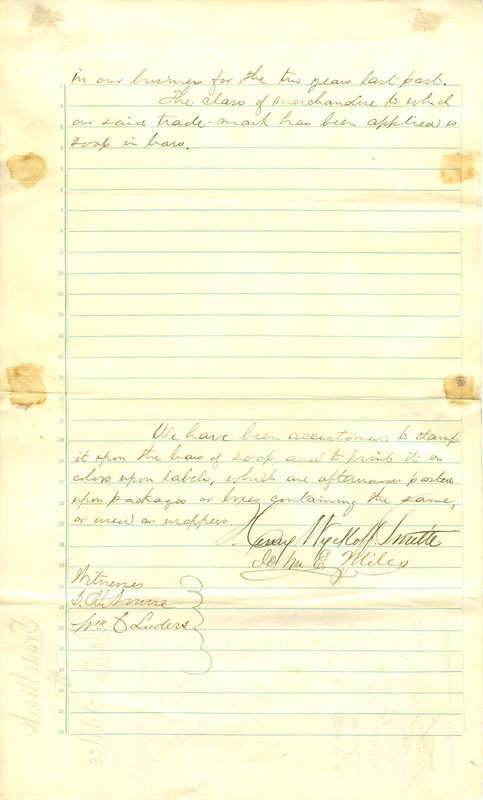 in our business for the two years last past.
The class of merchandise to which
our said trade-mark has been applied is
soap in bars.
We have been accustomed to stamp
it upon the bars of soap, and to print it in
colors upon labels, which are afterwards pasted
upon packages or boxes containing the same,
or used as wrappers.
Henry Wyckoff Smith
John E. Miles
Witnesses
Wm. C. Luders